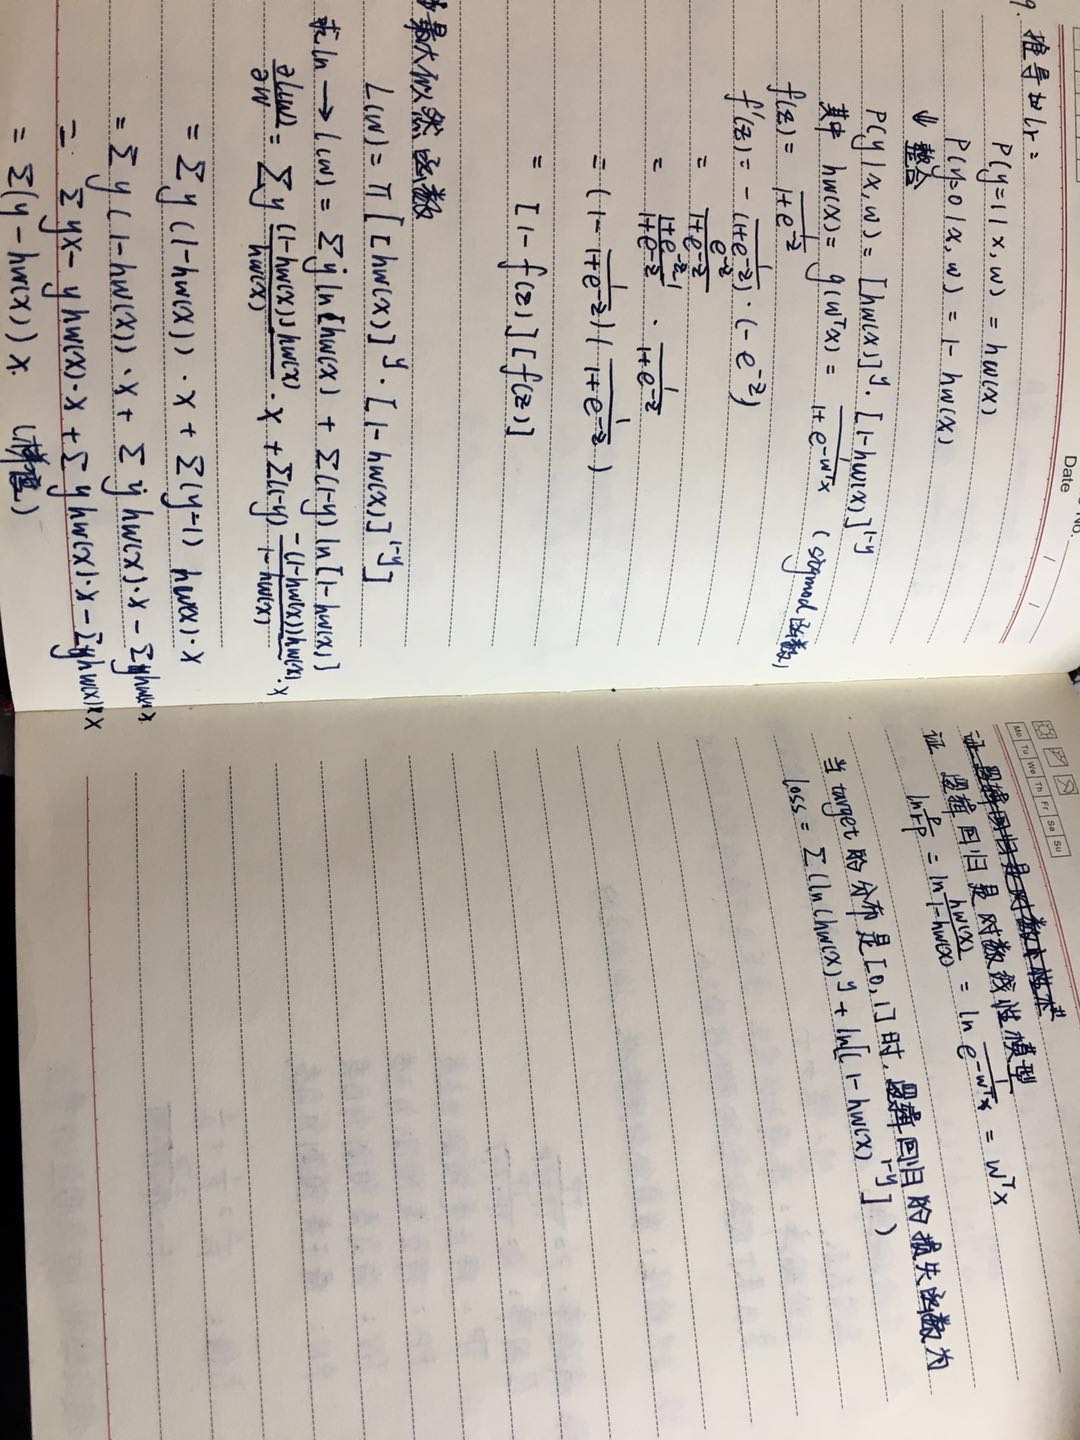 Date No. / /
9. 推导如lr:
P(y=1|x,w) = hw(x)
P(y=0|x,w) = 1 - hw(x)
↓ 整合
P(y|x,w) = [hw(x)]^y · [1-hw(x)]^{1-y}
其中 hw(x) = g(w^T x) = \frac{1}{1+e^{-w^T x}} (sigmod函数)
f(z) = \frac{1}{1+e^{-z}}
f'(z) = - \frac{1}{(1+e^{-z})} · (-e^{-z})
= \frac{e^{-z}}{1+e^{-z}}
= \frac{1+e^{-z}-1}{1+e^{-z}} · \frac{1}{1+e^{-z}}
= (1 - \frac{1}{1+e^{-z}})(\frac{1}{1+e^{-z}})
= [1-f(z)][f(z)]
最大似然函数
L(w) = π[[hw(x)]^y · [1-hw(x)]^{1-y}]
求ln → l(w) = Σy ln[hw(x) + Σ(1-y) ln[1-hw(x)]
\frac{∂l(w)}{∂w} = Σy \frac{(1-hw(x))hw(x)}{hw(x)} · x + Σ(1-y) \frac{-(1-hw(x))hw(x)}{1-hw(x)} · x
= Σy(1-hw(x)) · x + Σ(y-1) hw(x) · x
= Σy(1-hw(x)) · x + Σy hw(x) · x - Σ hw(x) x
= Σyx - y hw(x) · x + Σy hw(x) · x - Σ hw(x) x
= Σ(y - hw(x)) x
Mo Tu We Th Fr Sa Su
证 逻辑回归是对数线性模型
ln\frac{p}{1-p} = ln\frac{hw(x)}{1-hw(x)} = ln\frac{1}{e^{-w^T x}} = w^T x
当 target 的分布是[0,1]时,逻辑回归的损失函数为
loss = Σ(ln(hw(x)^y + ln[(1-hw(x)^{1-y}])